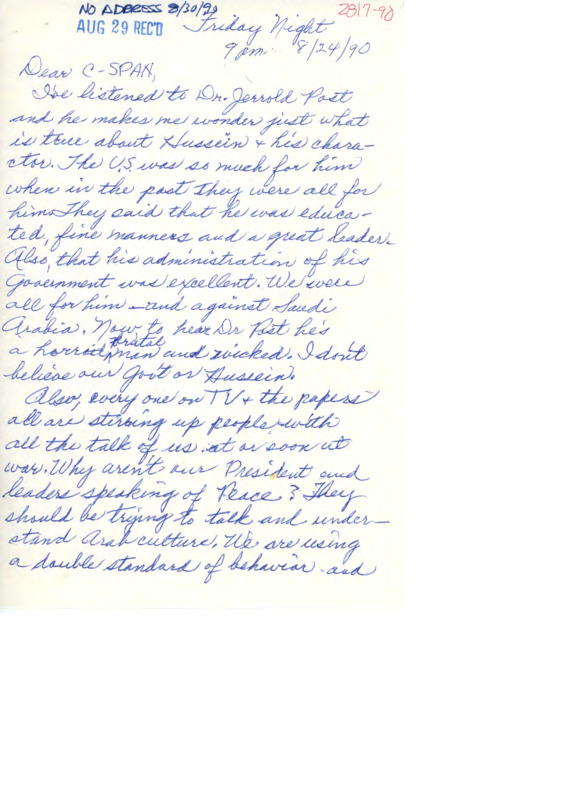 NO ADDRESS 8/30/90
2817-90
AUG 29 REC'D
Friday Night
9 pm. 8/24/90
Dear C-SPAN,
I've listened to Dr. Jerrold Post
and he makes me wonder just what
is true about Hussein + his chara-
ctor. The U.S. was so much for him
when in the past they were all for
him. They said that he was educa-
ted, fine manners and a great leader.
Also, that his administration of his
Government was excellent. We were
all for him – and against Saudi
Arabia. Now to hear Dr Post he's
a horrid brutal man and wicked. I don't
believe our Gov't or Hussein.
Also, every one on TV + the papers
all are stirring up people with
all the talk of us at or soon at
war. Why aren't our President and
leaders speaking of Peace? They
should be trying to talk and under-
stand Arab culture. We are using
a double standard of behavior and